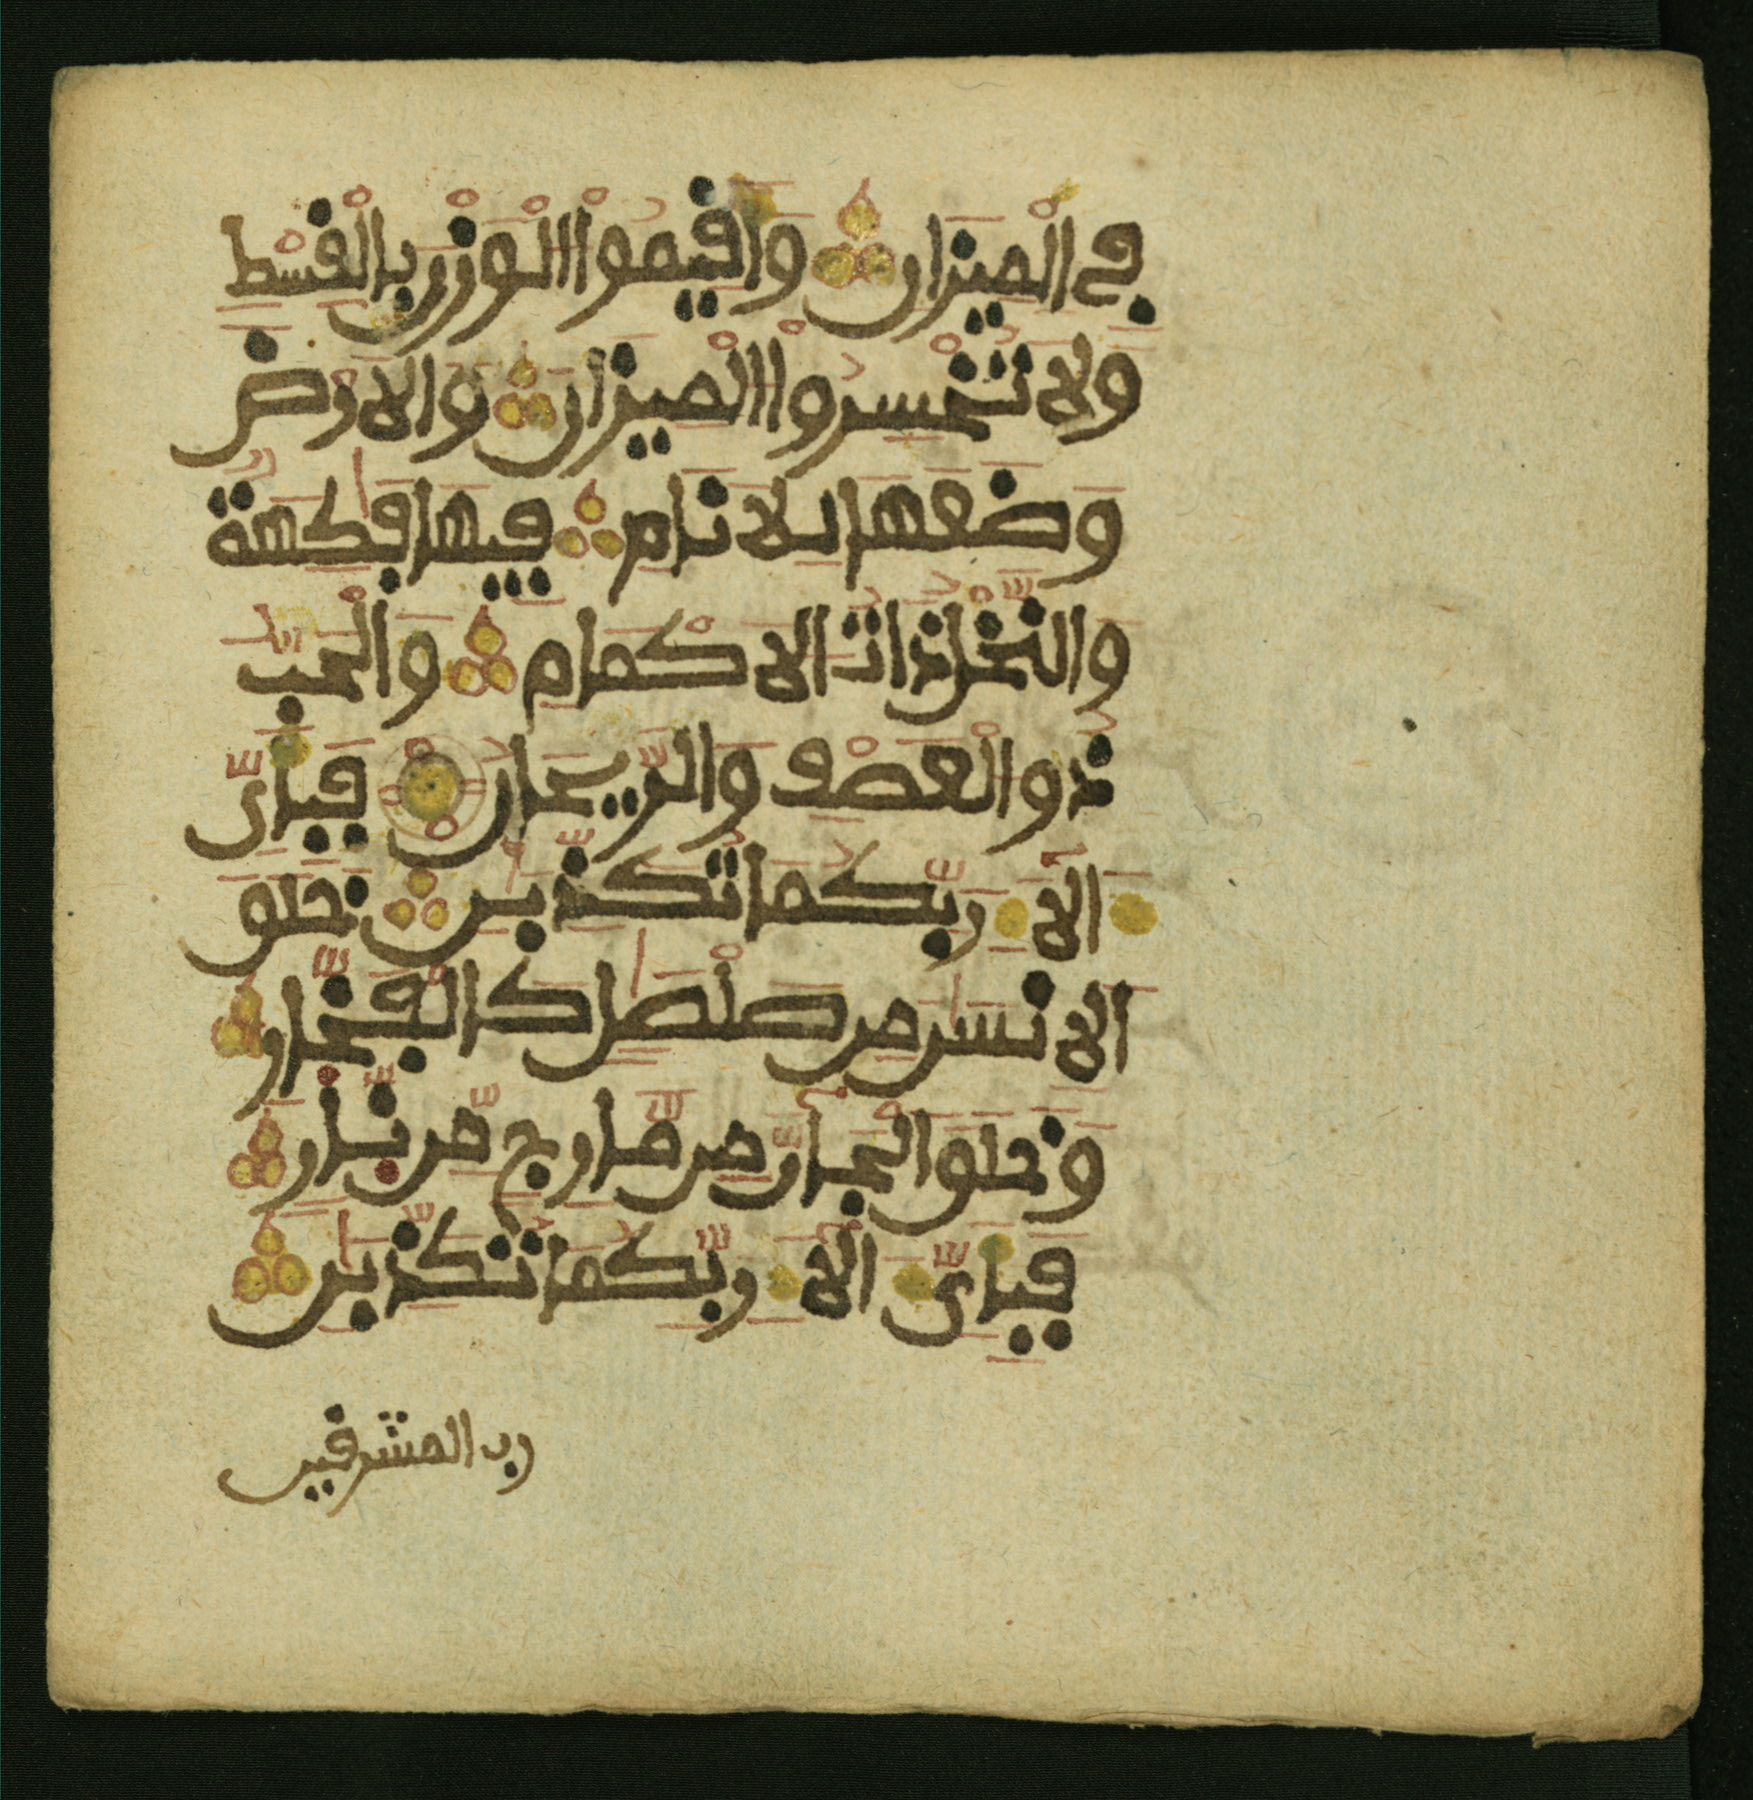 في الميزان وأقيموا الوزن بالقسط
ولا تخسروا الميزان والارض
وضعها للانام فيها فكهة
والنخل ذات الاكمام والحب
ذو العصف والريحان فبأي
الاء ربكما تكذبن خلق
الانسن من صلصل كالفخار
وخلق الجان من مارج من نار
فبأي الاء ربكما تكذبن
رب المشرقين